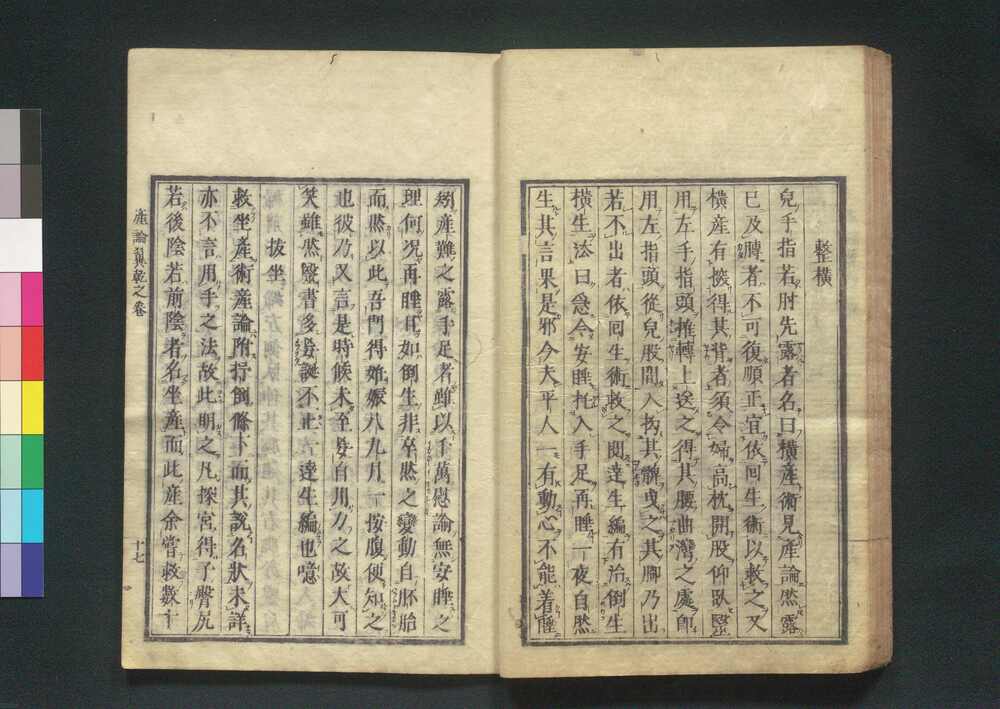 整横
兒手指若肘先露者名曰橫産術見産論然露
已及膊者不可復順正宜依回生術以救之又
橫産有擬得其背者須令婦高枕開股仰臥醫
用左手指頭推轉上送之得其腰曲灣之處卽
用左指頭從兒股間入抅其髀曳之其脚乃出
若不出者依回生術救之閱達生編有治倒生
橫生法曰急令安睡托入手足再睡一夜自然
生其言果是邪今夫平人一有動心不能着睡
産難之露手足者雖以千萬慰諭無安睡之
理何况再睡耳如倒生非卒然之變動自胚胎
而然以此吾門得妊娠八九月一按腹便知之
也彼乃又言是時候未至妄自用力之故大可
笑雖然醫書多妄誕不止一達生編也噫
拔坐
救坐産術産論附于倒條下而其說名狀未詳
亦不言用手之法故此明之凡探宮得子臀尻
若後陰若前陰者名坐産而此産余嘗救數十
産論翼乾之卷
十七